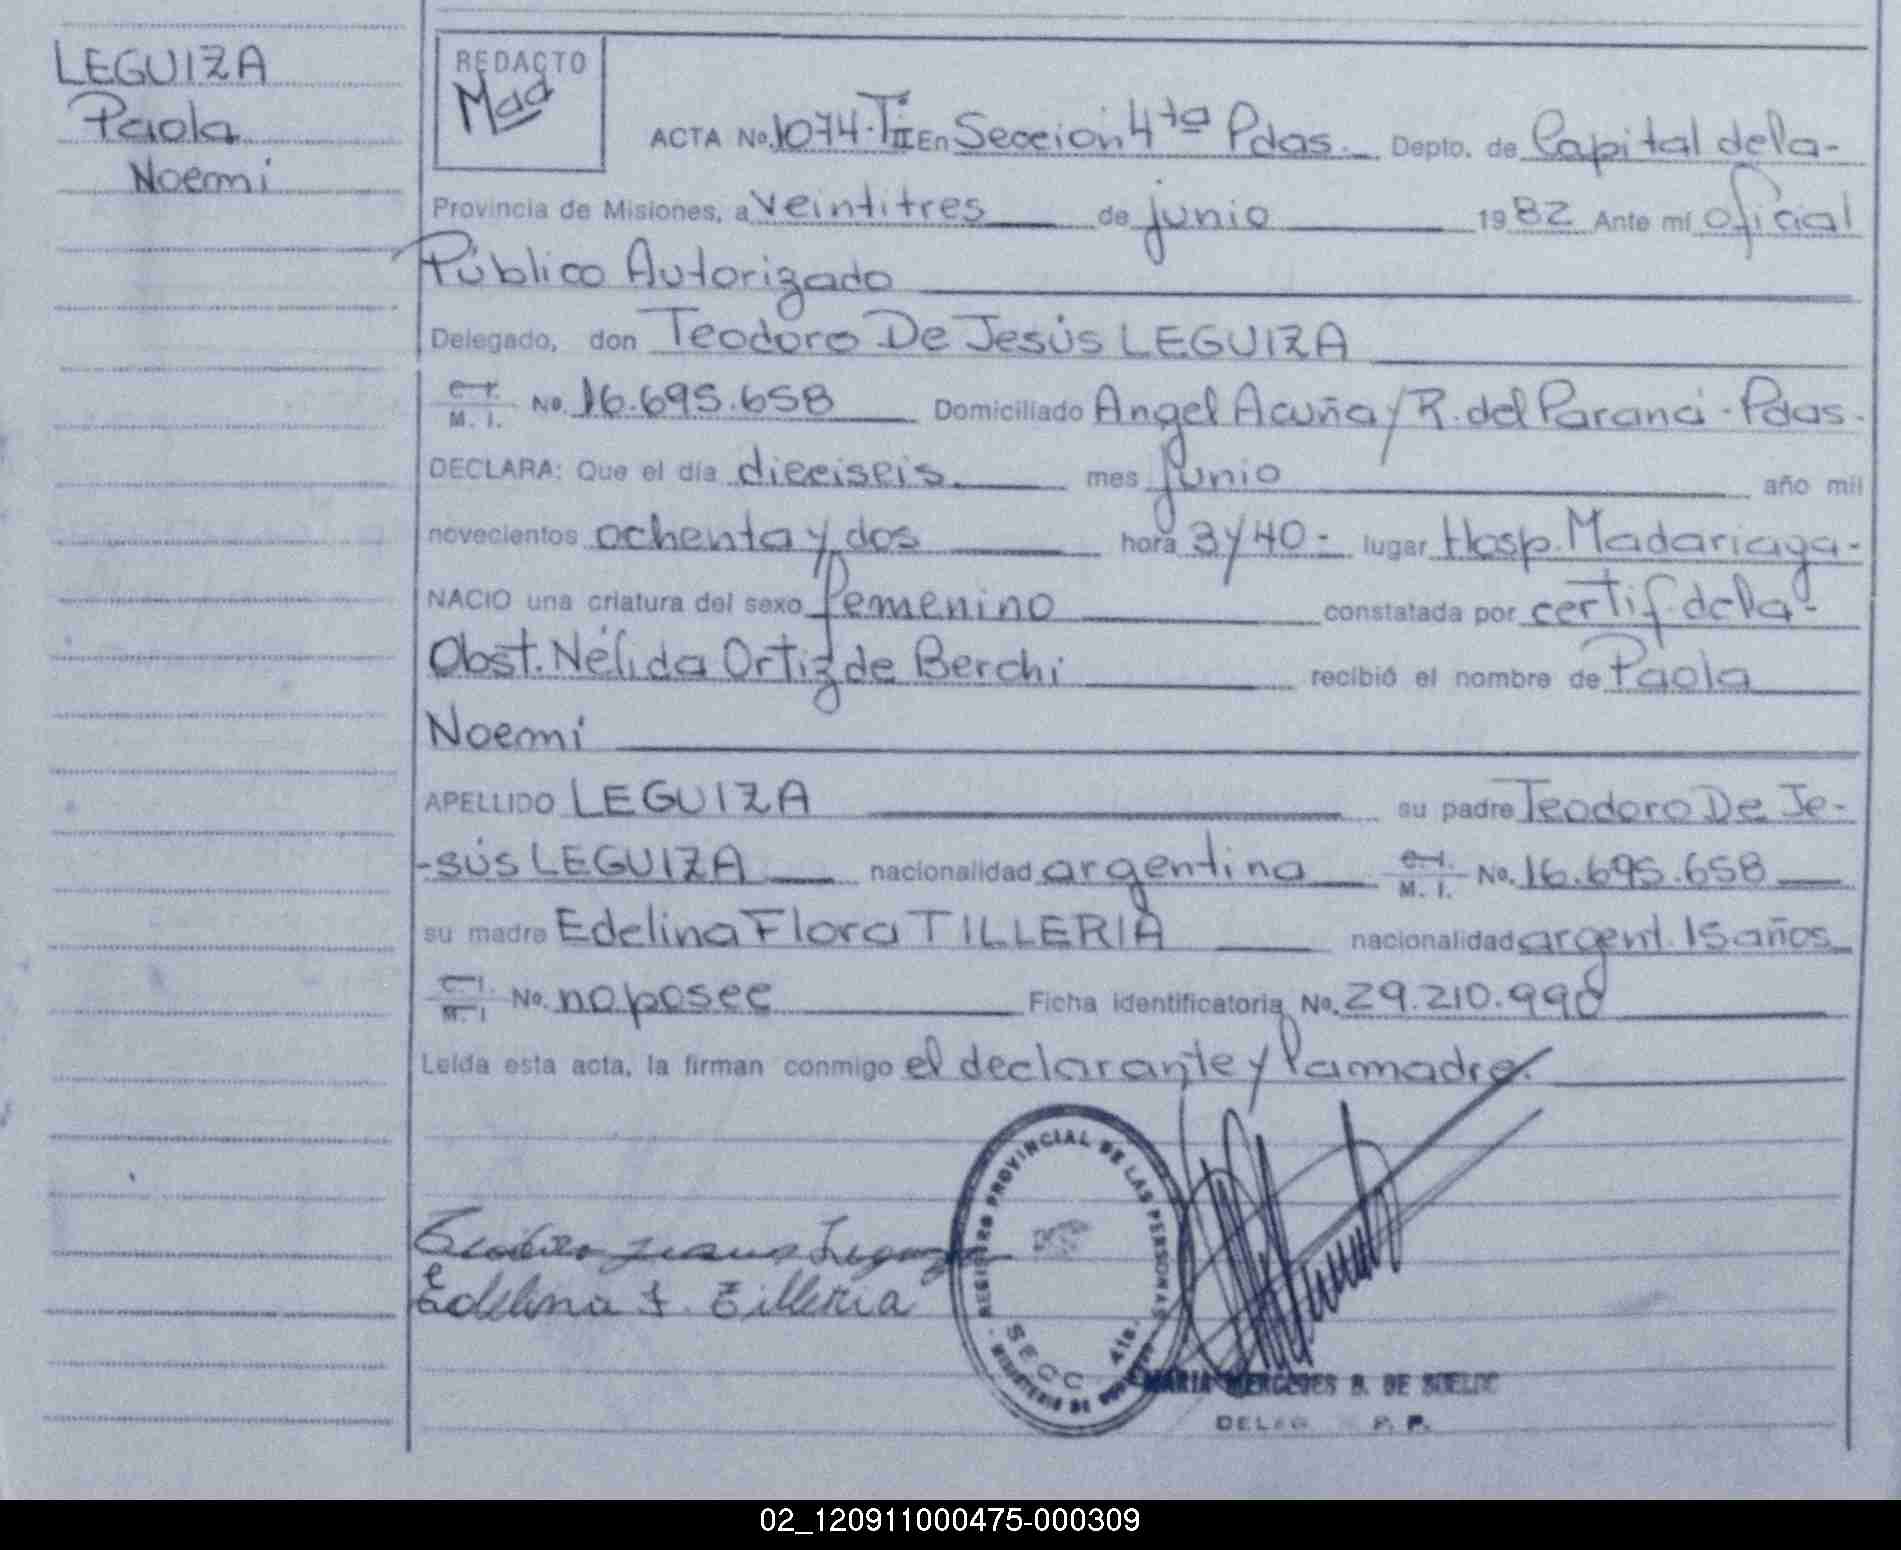 LEGUIZA
Paola
Noemi
REDACTO
Mad
ACTA No. 1074-TII En Seccion 4ta Pdas. Depto. de Capital de la-
Provincia de Misiones, a veintitres de junio 1982 Ante mí oficial
Público Autorizado
Delegado, don Teodoro De Jesús LEGUIZA
C.I. M. I. No. 16.695.658 Domiciliado Angel Acuña / R. del Paraná - Pdas.
DECLARA: Que el día dieciseis. mes junio año mil
novecientos ochenta y dos hora 3 y 40 - lugar Hosp. Madariaga-
NACIO una criatura del sexo femenino constatada por certif. de la-
Obst. Nélida Ortiz de Berchi recibió el nombre de Paola
Noemi
APELLIDO LEGUIZA su padre Teodoro De Je-
-sús LEGUIZA nacionalidad argentina C.I. M. I. No. 16.695.658
su madre Edelina Flora TILLERIA nacionalidad argent. 15 años
C.I. M. I No. no posee Ficha identificatoria No. 29.210.990
Leída esta acta, la firman conmigo el declarante y la madre.
REGISTRO PROVINCIAL DE LAS PERSONAS
SECC 4ta.
MINISTERIO DE
Teodoro Jesus Leguiza
Edelina F. Tilleria
MARIA MERCEDES B. DE
DELEG P. P.
02_120911000475-000309